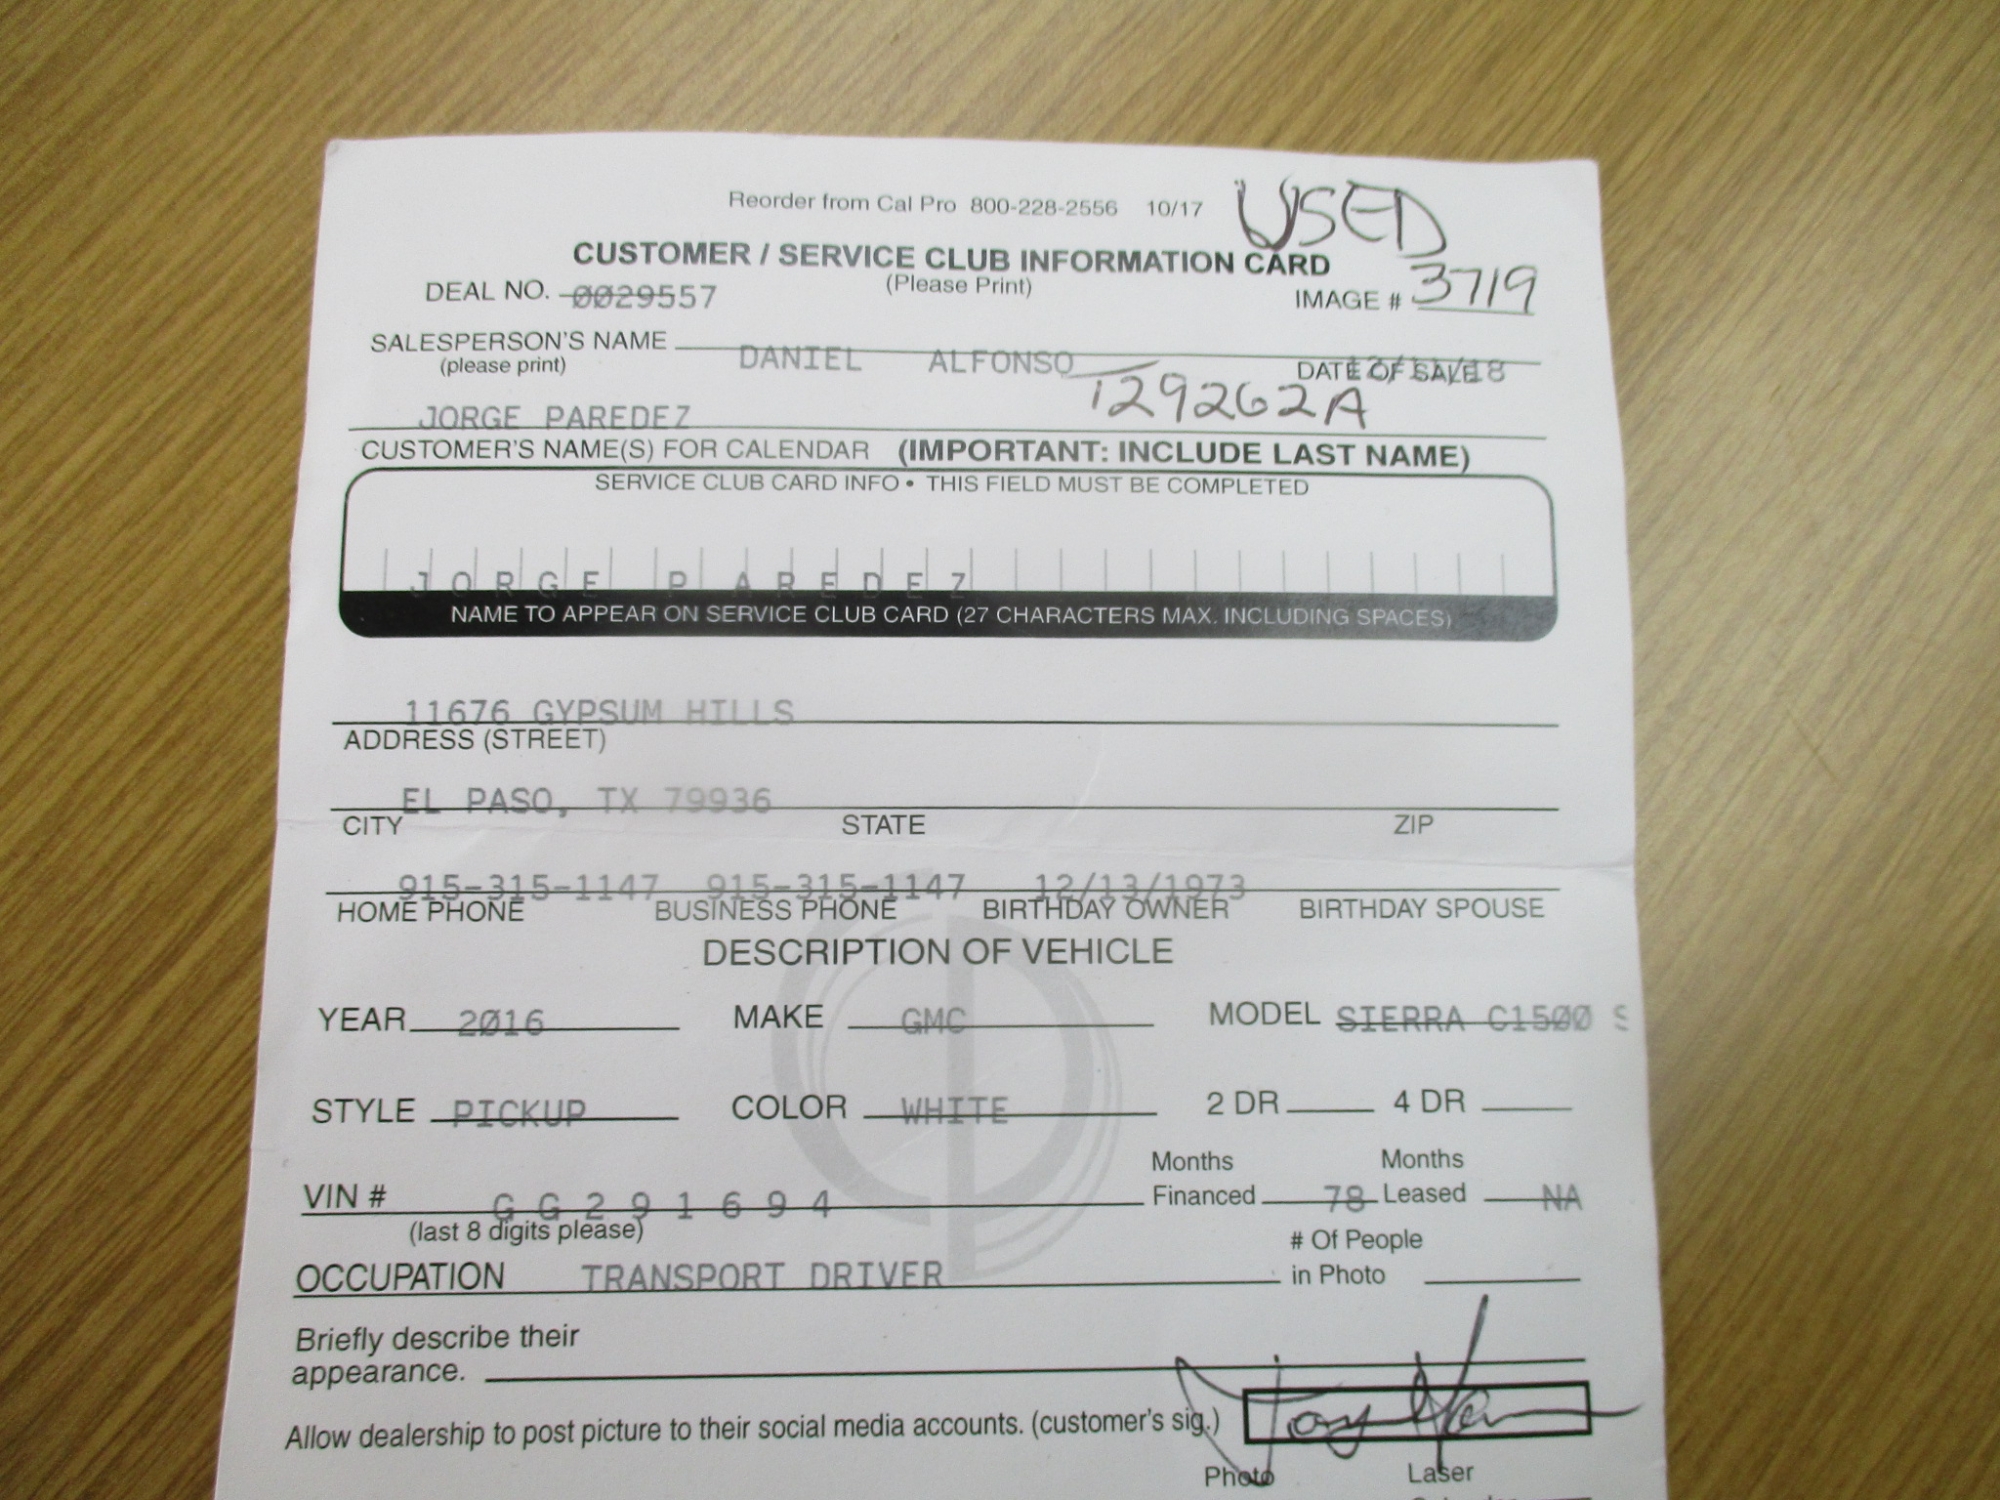 Reorder from Cal Pro 800-228-2556 10/17 USED
CUSTOMER / SERVICE CLUB INFORMATION CARD
(Please Print)
DEAL NO. 0029557 IMAGE # 3719
SALESPERSON'S NAME DANIEL ALFONSO
(please print) DATE OF SALE
JORGE PAREDEZ T29262A
CUSTOMER'S NAME(S) FOR CALENDAR (IMPORTANT: INCLUDE LAST NAME)
SERVICE CLUB CARD INFO • THIS FIELD MUST BE COMPLETED
JORGE PAREDEZ
NAME TO APPEAR ON SERVICE CLUB CARD (27 CHARACTERS MAX. INCLUDING SPACES)
11676 GYPSUM HILLS
ADDRESS (STREET)
EL PASO, TX 79936
CITY STATE ZIP
915-315-1147 915-315-1147 12/13/1973
HOME PHONE BUSINESS PHONE BIRTHDAY OWNER BIRTHDAY SPOUSE
DESCRIPTION OF VEHICLE
YEAR 2016 MAKE GMC MODEL SIERRA C1500 S
STYLE PICKUP COLOR WHITE 2 DR 4 DR
Months Months
VIN # GG291694 Financed 78 Leased NA
(last 8 digits please)
# Of People
OCCUPATION TRANSPORT DRIVER in Photo
Briefly describe their
appearance.
Allow dealership to post picture to their social media accounts. (customer's sig.)
Photo Laser